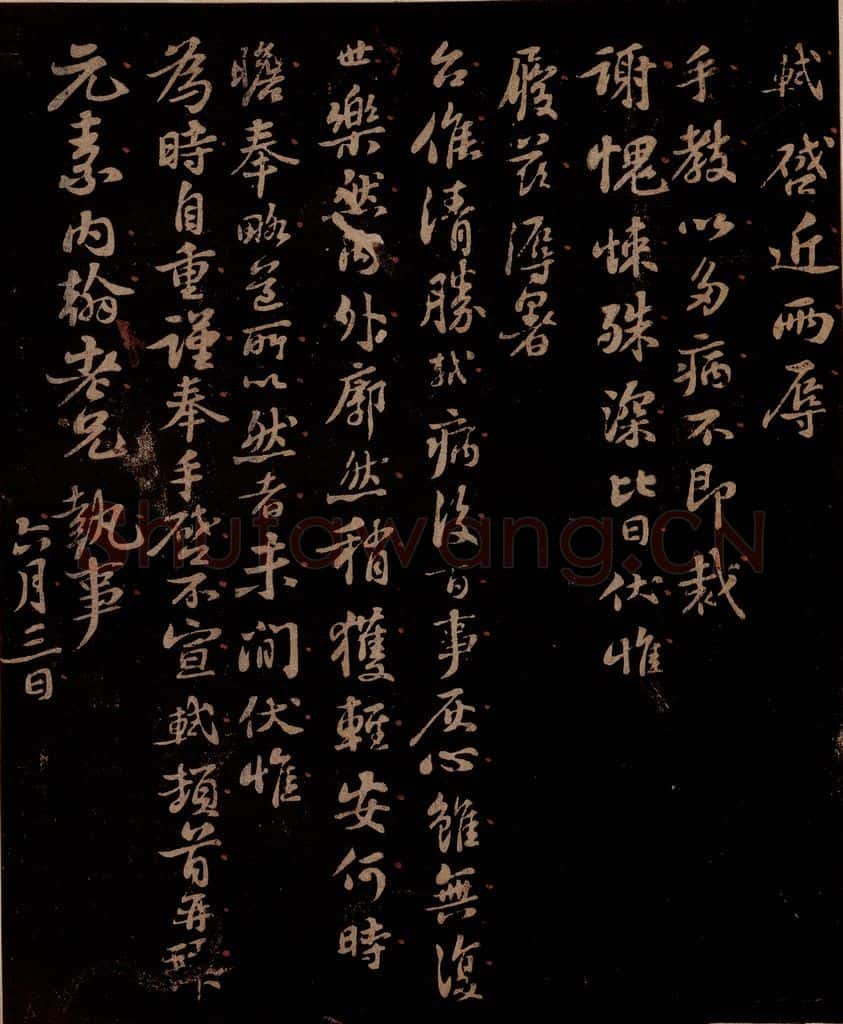 軾啓近兩辱
手教以多病不即裁
謝愧悚殊深比日伏惟
履茲溽暑
台候清勝軾病後百事灰心雖無復
世樂然內外廓然稍獲輕安何時
瞻奉略道所以然者未間伏惟
為時自重謹奉手啓不宣軾頓首再拜
元素內翰老兄執事
六月三日
Shufawang.CN